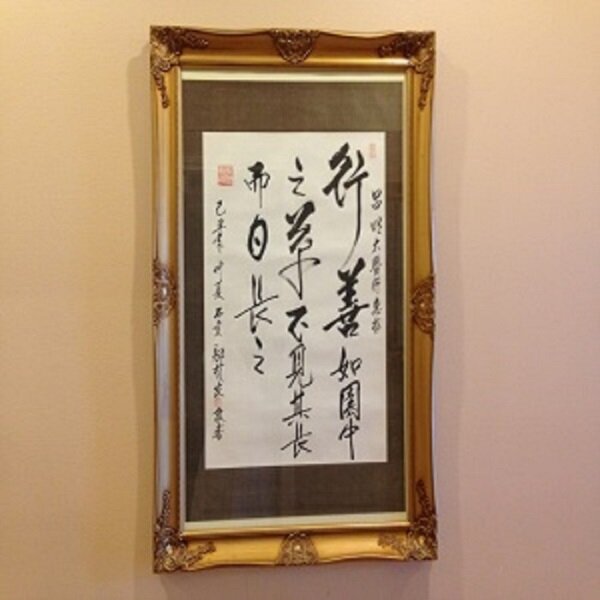 昌明大醫師惠存
行善如園中
之草不見其長
而自長之
己丑年仲夏
敬書